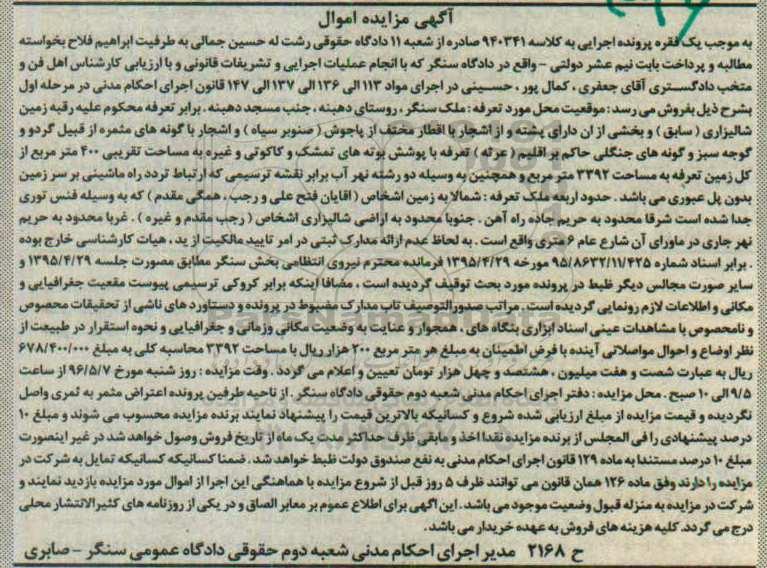 آگهی مزایده اموال
به موجب یک فقره پرونده اجرایی به کلاسه ۹۴۰۳۴۱ صادره از شعبه ۱۱ دادگاه حقوقی رشت له حسین جمالی به طرفیت ابراهیم فلاح بخواسته
مطالبه و پرداخت بابت نیم عشر دولتی - واقع در دادگاه سنگر که با انجام عملیات اجرایی و تشریفات قانونی و با ارزیابی کارشناس اهل فن و
متخب دادگستری آقای جعفری ، کمال پور ، حسینی در اجرای مواد ۱۱۳ الی ۱۳۶ الی ۱۳۷ الی ۱۴۷ قانون اجرای احکام مدنی در مرحله اول
بشرح ذیل بفروش می رسد : موقعیت محل مورد تعرفه : ملک سنگر ، روستای دهبنه ، جنب مسجد دهبنه . برابر تعرفه محکوم علیه رقبه زمین
شالیزاری ( سابق ) و بخشی از ان دارای پشته و از اشجار با اقطار مختف از پاجوش ( صنوبر سیاه ) و اشجار با گونه های مثمره از قبیل گردو و
گوجه سبز و گونه های جنگلی حاکم بر اقلیم ( عرثه ) تعرفه با پوشش بوته های تمشک و کاکوتی و غیره به مساحت تقریبی ۴۰۰ متر مربع از
کل زمین تعرفه به مساحت ۳۳۹۲ متر مربع و همچنین به وسیله دو رشته نهر آب برابر نقشه ترسیمی که ارتباط تردد راه ماشینی بر سر زمین
بدون پل عبوری می باشد . حدود اربعه ملک تعرفه : شمالا به زمین اشخاص ( اقایان فتح علی و رجب ، همگی مقدم ) که به وسیله فنس توری
جدا شده است شرقا محدود به حریم جاده راه آهن . جنوبا محدود به اراضی شالیزاری اشخاص ( رجب مقدم و غیره ) . غربا محدود به حریم
نهر جاری در ماورای آن شارع عام ۶ متری واقع است . به لحاظ عدم ارائه مدارک ثبتی در امر تایید مالکیت از ید ، هیات کارشناسی خارج بوده
. برابر اسناد شماره ۹۵/۸۶۳۲/۱۱/۴۲۵ مورخه ۱۳۹۵/۴/۲۹ فرمانده محترم نیروی انتظامی بخش سنگر مطابق مصورت جلسه ۱۳۹۵/۴/۲۹ و
سایر صورت مجالس دیگر ظبط در پرونده مورد بحث توقیف گردیده است ، مضافا اینکه برابر کروکی ترسیمی پیوست مقعیت جغرافیایی و
مکانی و اطلاعات لازم رونمایی گردیده است. مراتب صدورالتوصیف تاب مدارک مضبوط در پرونده و دستاورد های ناشی از تحقیقات محصوص
و نامحصوص با مشاهدات عینی اسناد ابزاری بنگاه های ، همجوار و عنایت به وضعیت مکانی وزمانی و جغرافیایی و نحوه استقرار در طبیعت از
نظر اوضاع و احوال مواصلاتی آینده با فرض اطمینان به مبلغ هر متر مربع ۲۰۰ هزار ریال با مساحت ۳۳۹۲ محاسبه کلی به مبلغ ۶۷۸/۴۰۰/۰۰۰
ریال به عبارت شصت و هفت میلیون ، هشتصد و چهل هزار تومان تعیین و اعلام می گردد . وقت مزایده : روز شنبه مورخ ۹۶/۵/۷ از ساعت
۹/۵ الی ۱۰ صبح . محل مزایده : دفتر اجرای احکام مدنی شعبه دوم حقوقی دادگاه سنگر . از ناحیه طرفین پرونده اعتراض مثمر به ثمری واصل
نگردیده و قیمت مزایده از مبلغ ارزیابی شده شروع و کسانیکه بالاترین قیمت را پیشنهاد نمایند برنده مزایده محسوب می شوند و مبلغ ۱۰
درصد پیشنهادی را فی المجلس از برنده مزایده نقدا اخذ و مابقی ظرف حداکثر مدت یک ماه از تاریخ فروش وصول خواهد شد در غیر اینصورت
مبلغ ۱۰ درصد مستندا به ماده ۱۲۹ قانون اجرای احکام مدنی به نفع صندوق دولت ظبط خواهد شد . ضمنا کسانیکه کسانیکه تمایل به شرکت در
مزایده را دارند وفق ماده ۱۲۶ همان قانون می توانند ظرف ۵ روز قبل از شروع مزایده با هماهنگی این اجرا از اموال مورد مزایده بازدید نمایند و
شرکت در مزایده به منزله قبول وضعیت موجود می باشد . این اگهی برای اطلاع عموم بر معابر الصاق و در یکی از روزنامه های کثیرالانتشار محلی
درج می گردد. کلیه هزینه های فروش به عهده خریدار می باشد .
ح ۲۱۶۸ مدیر اجرای احکام مدنی شعبه دوم حقوقی دادگاه عمومی سنگر - صابری